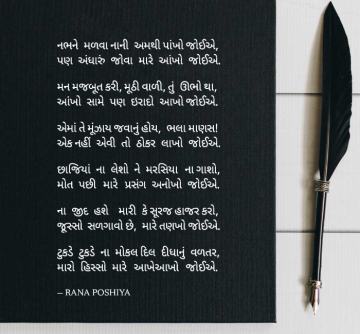 નભને મળવા નાની અમથી પાંખો જોઈએ,
પણ અંધારું જોવા મારે આંખો જોઈએ.
મન મજબૂત કરી, મૂઠી વાળી, તું ઊભો થા,
આંખો સામે પણ ઇરાદો આખો જોઈએ.
એમાં તે મૂંઝાય જવાનું હોય, ભલા માણસ!
એક નહીં એવી તો ઠોકર લાખો જોઈએ.
છાજિયાં ના લેશો ને મરસિયા ના ગાશો,
મોત પછી મારે પ્રસંગ અનોખો જોઈએ.
ના જીદ હશે મારી કે સૂરજ હાજર કરો,
જૂસ્સો સળગાવો છે, મારે તણખો જોઈએ.
ટુકડે ટુકડે ના મોકલ દિલ દીધાનું વળતર,
મારો હિસ્સો મારે આખેઆખો જોઈએ.
– RANA POSHIYA